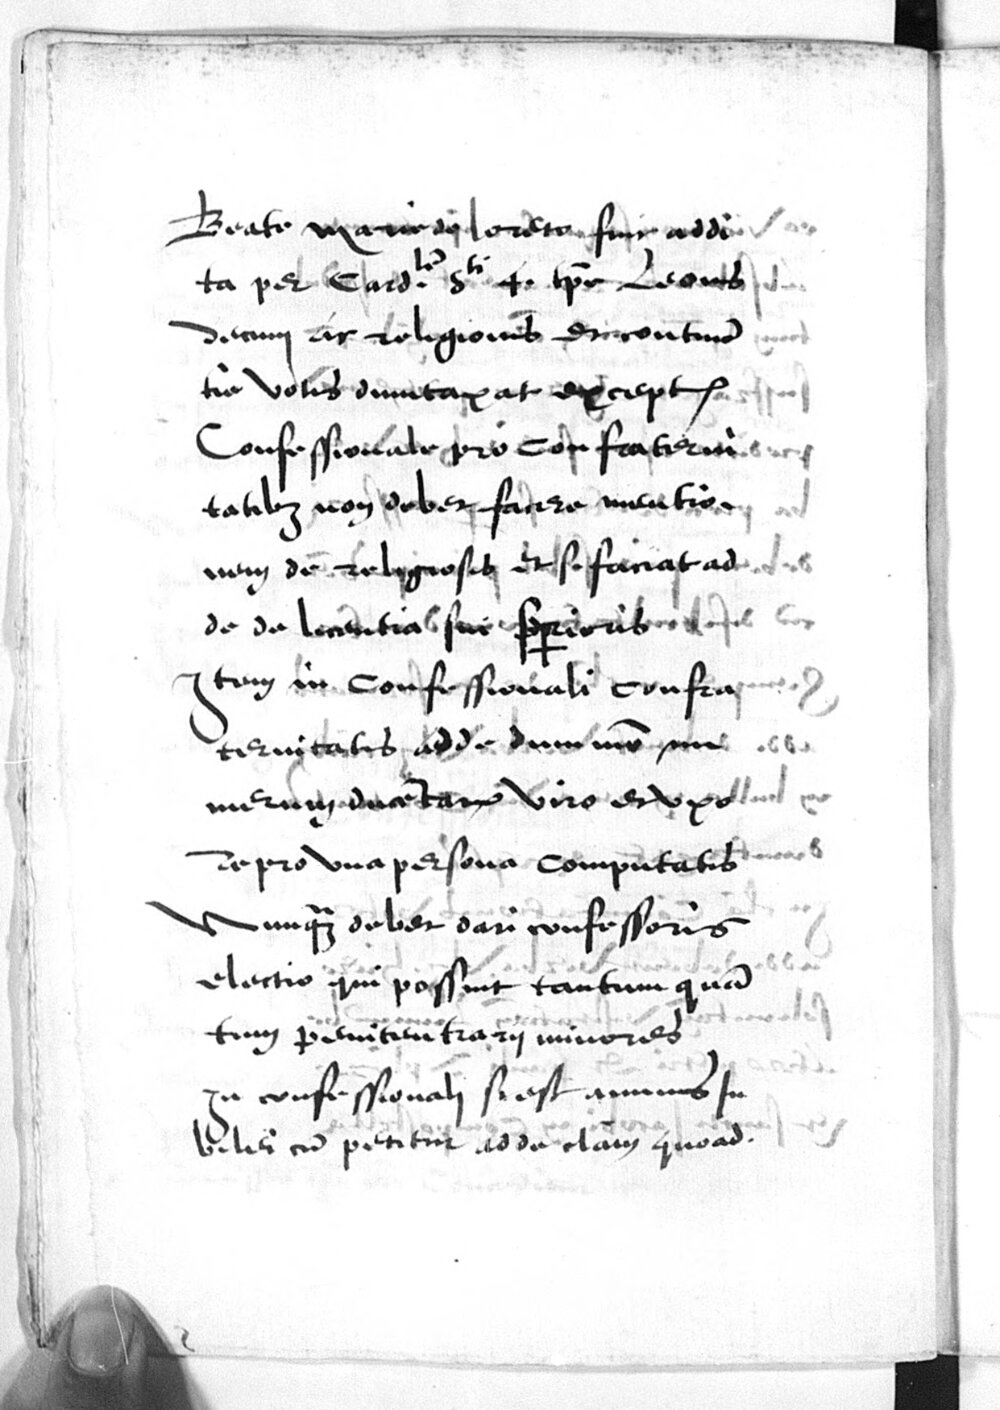 Beate Marie de loreto fuit addi
ta per Card.lē Sti 4or tp̄e Leonis
decimi ac religionis et continē
tie votis dumtaxat exceptis
Confessionale pro confraterni
tatibꝫ non debet facere mentio
nem de religiosis et si faciat ad
de de licentia sui Sꝑioris
Item in Confessionali confra
ternitatis adde dummō nu
merum ducētarꝝ viro et vxo
re pro vna persona computatis
Nunqꝫ debet dari confessoris
electio qui possint tantum quā
tum penitentiarij minores
In confessionali si est annus Iu
bilei cū petitur adde clām quoad.